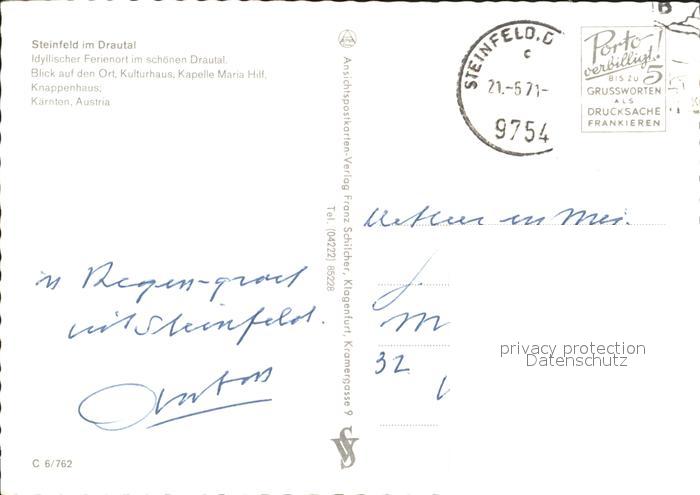 Steinfeld im Drautal
Idyllischer Ferienort im schönen Drautal.
Blick auf den Ort, Kulturhaus, Kapelle Maria Hilf,
Knappenhaus;
Kärnten, Austria
Ansichtspostkarten-Verlag Franz Schilcher, Klagenfurt, Kramergasse 9
Tel. (04222) 85228
STEINFELD, D
c
21.-5 71-
9754
Porto
verbilligt!
BIS ZU 5
GRUSSWORTEN
ALS
DRUCKSACHE
FRANKIEREN
in Regen-
aus Steinfeld.
M
32
privacy protection
Datenschutz
C 6/762